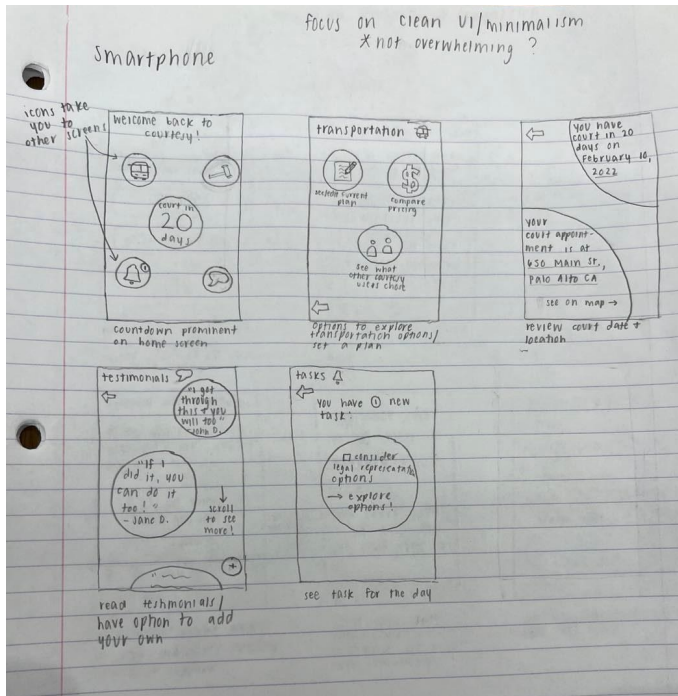 focus on clean UI/minimalism
*not overwhelming ?
Smartphone
icons take
you to
other screens
welcome back to
courtesy!
court in
20
days
countdown prominent
on home screen
transportation
see/edit current
plan
compare
pricing
see what
other courtesy
users chose
options to explore
transportation options/
set a plan
you have
court in 20
days on
February 16,
2022
your
court appoint-
ment is at
650 Main St.,
Palo Alto CA
see on map →
review court date +
location
testimonials
"I got
through
this + you
will too"
-John D.
"If I
did it, you
can do it
too!"
- Jane D.
scroll
to see
more!
+
read testimonials/
have option to add
your own
tasks
you have ① new
task:
consider
legal representation
options
→ explore
options!
see task for the day